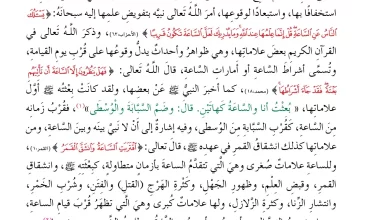 استخفافًا بها، واستبعادًا لوقوعها، أمرَ اللهُ تعالى نبيَّه بتفويض علمِها إليه سبحانَهُ: ﴿يَسْـَٔلُكَ
ٱلنَّاسُ عَنِ ٱلسَّاعَةِ قُلْ إِنَّمَا عِلْمُهَا عِندَ ٱللَّهِ وَمَا يُدْرِيكَ لَعَلَّ ٱلسَّاعَةَ تَكُونُ قَرِيبًا﴾ (الأحزاب:٦٣)، وذكرَ اللهُ تعالى في
القرآنِ الكريمِ بعضَ علاماتِها، وهي ظواهرُ وأحداثٌ يدلُّ وقوعُها على قُربِ يومِ القيامة،
وتُسمّى أشراطَ السَّاعةِ أو أماراتِ السّاعةِ، قالَ اللهُ تعالى: ﴿فَهَلْ يَنظُرُونَ إِلَّا ٱلسَّاعَةَ أَن تَأْتِيَهُم
بَغْتَةً فَقَدْ جَآءَ أَشْرَاطُهَا﴾ (محمد:١٨)، كما أخبرَ النبيُّ ﷺ عنْ بعضِها، ولقد كانتْ بِعْثَتُه ﷺ أوّلَ
علاماتِها، «بُعثْتُ أنا والسَّاعَةُ كهاتَيْنِ. قالَ: وضَمَّ السَّبَّابةَ والْوُسْطَى»(١)، فقُرْبُ زمانِه
مِنَ السَّاعةِ، كَقُربِ السَّبّابةِ مِنَ الوُسطى، وفيه إشارةٌ إلى أنْ لا نَبيَّ بينَه وبينَ السّاعةِ، ومن
علاماتِها كذلك انشقاقُ القمرِ في عهدِه ﷺ، قال تعالى: ﴿ٱقْتَرَبَتِ ٱلسَّاعَةُ وَٱنشَقَّ ٱلْقَمَرُ﴾
وللساعةِ علاماتٌ صُغرى وهي الّتي تتقدّمُ الساعةَ بأزمانٍ متطاولةٍ، كبِعْثَتِه ﷺ، وانشقاقِ
القمرِ، وقبضِ العِلْمِ، وظهورِ الجَهْلِ، وكَثْرةِ الهَرْجِ (القتلِ) والفِتَنِ، وشُربِ الخَمْرِ،
وانتشارِ الزِّنا، وكثرةِ الزَّلازلِ، ولها علاماتٌ كُبرى وهي الّتي تَظهَرُ قُرْبَ قيامِ الساعةِ،